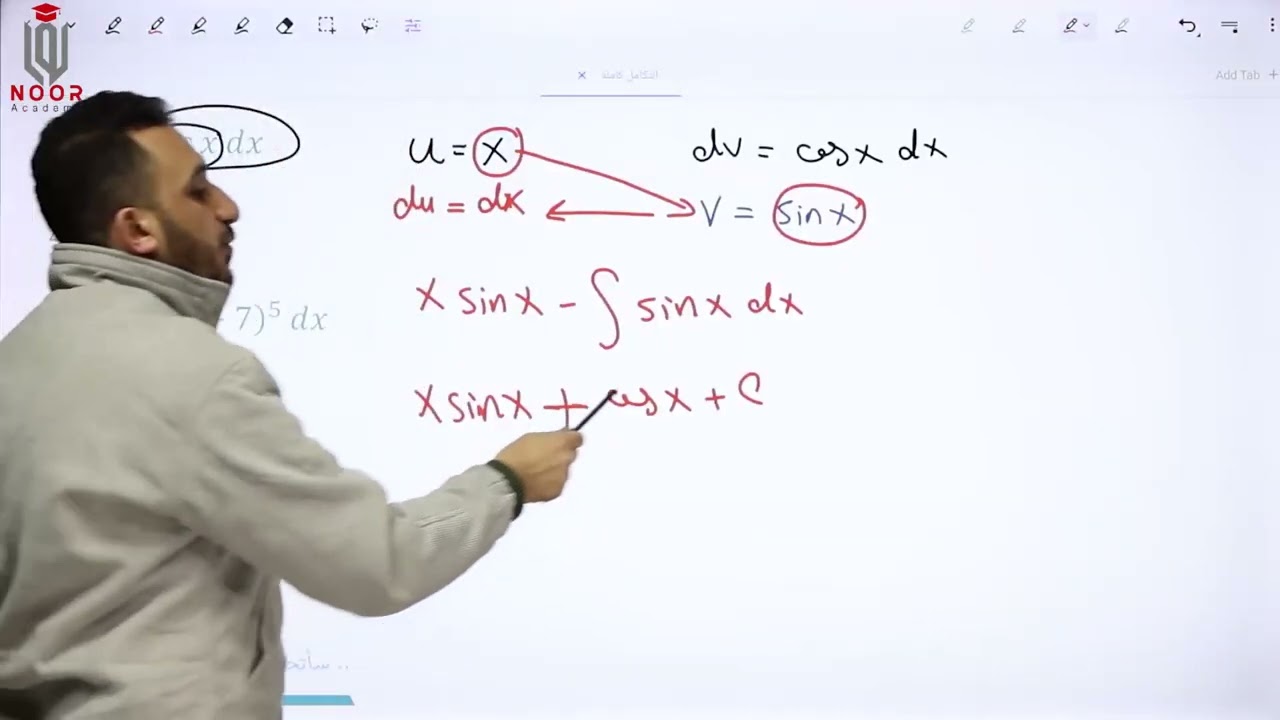 NOOR
Academ
التكامل كاملة
Add Tab +
x dx
u = x
dv = cosx dx
du = dx
v = sinx
7)⁵ dx
x sinx - ∫ sinx dx
x sinx + cosx + C